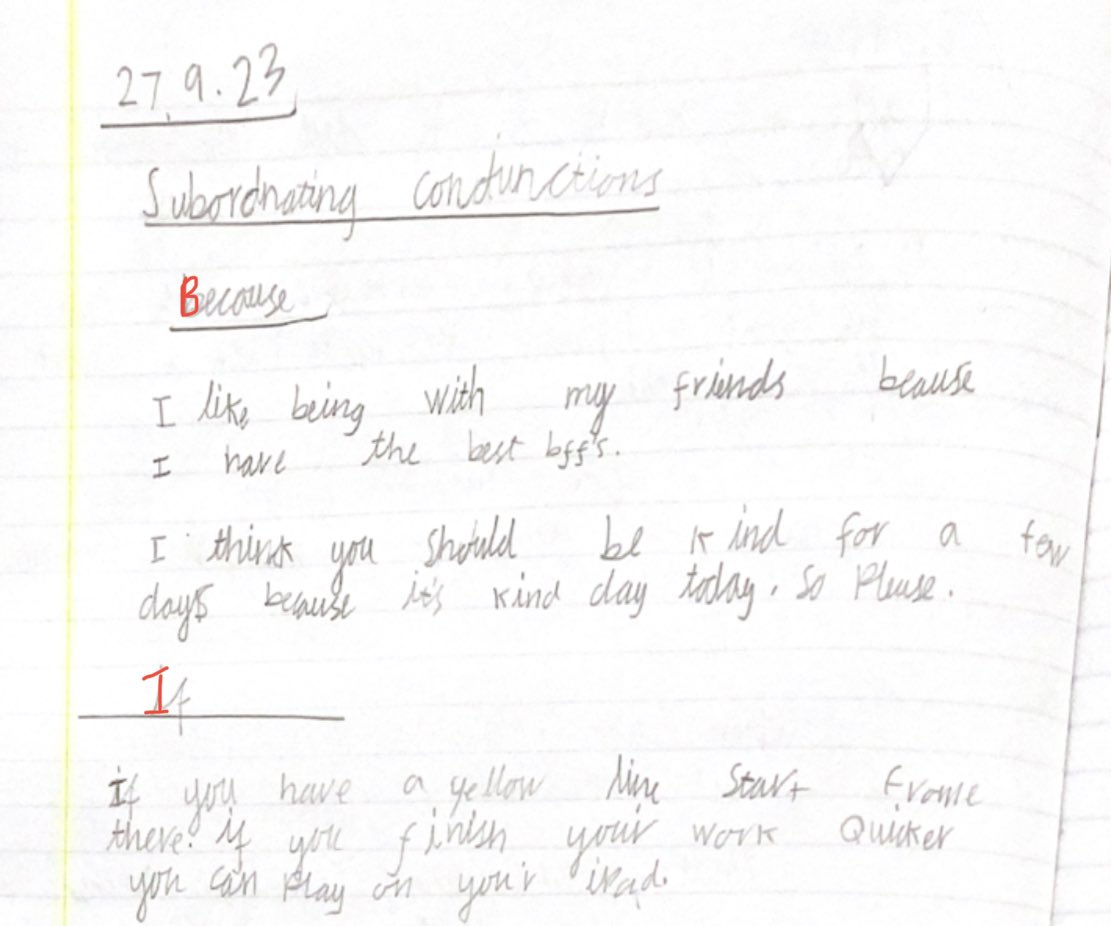 27.9.23
Subordnating conjunctions
Because
I like being with my friends beause
I have the best bff's.
I think you should be kind for a few
days because it's kind day today. So Please.
If
If you have a yellow line start frome
there. if you finish your work Quicker
you can Play on your iPad.